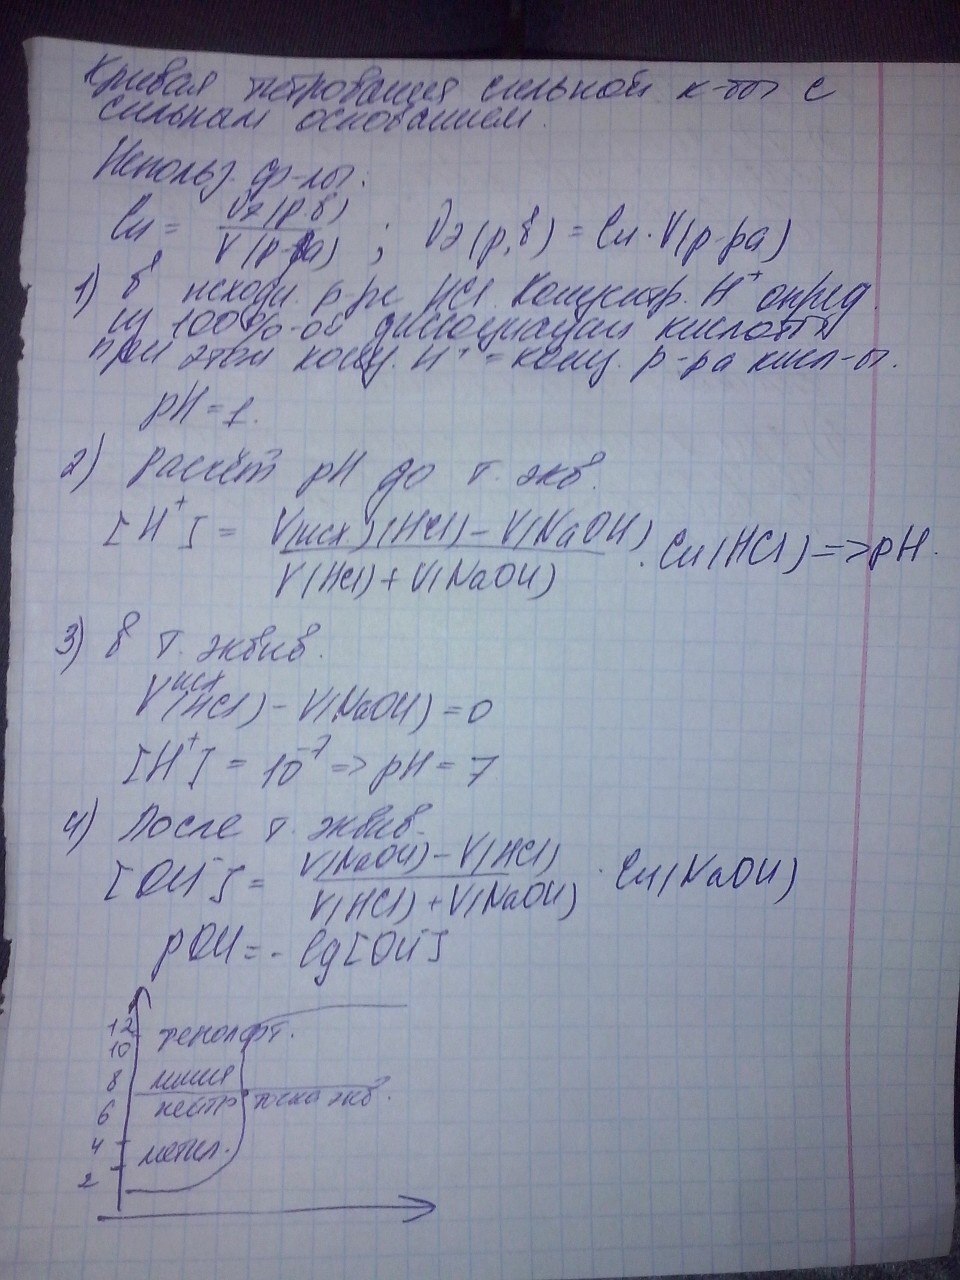 Кривая титрования сильной к-ты с
сильным основанием.
Использ. ф-лы:
Cн = νэ(р.в) / V(р-ра) ; νэ(р.в) = Cн · V(р-ра)
1) в исходн. р-ре HCl концентр. H⁺ опред.
из 100%-ой диссоциации кислоты
при этом конц. H⁺ = конц. р-ра кисл-ы.
pH = 1.
2) Расчёт pH до т. экв.
[H⁺] = V(исх)(HCl) - V(NaOH) / V(HCl) + V(NaOH) · Cн(HCl) => pH.
3) в т. эквив.
V исх (HCl) - V(NaOH) = 0
[H⁺] = 10⁻⁷ => pH = 7
4) После т. эквив.
[OH⁻] = V(NaOH) - V(HCl) / V(HCl) + V(NaOH) · Cн(NaOH)
pOH = - lg[OH⁻]
12
10
8
6
4
2
фенолфт.
линия
нейтр. точка экв.
метил.